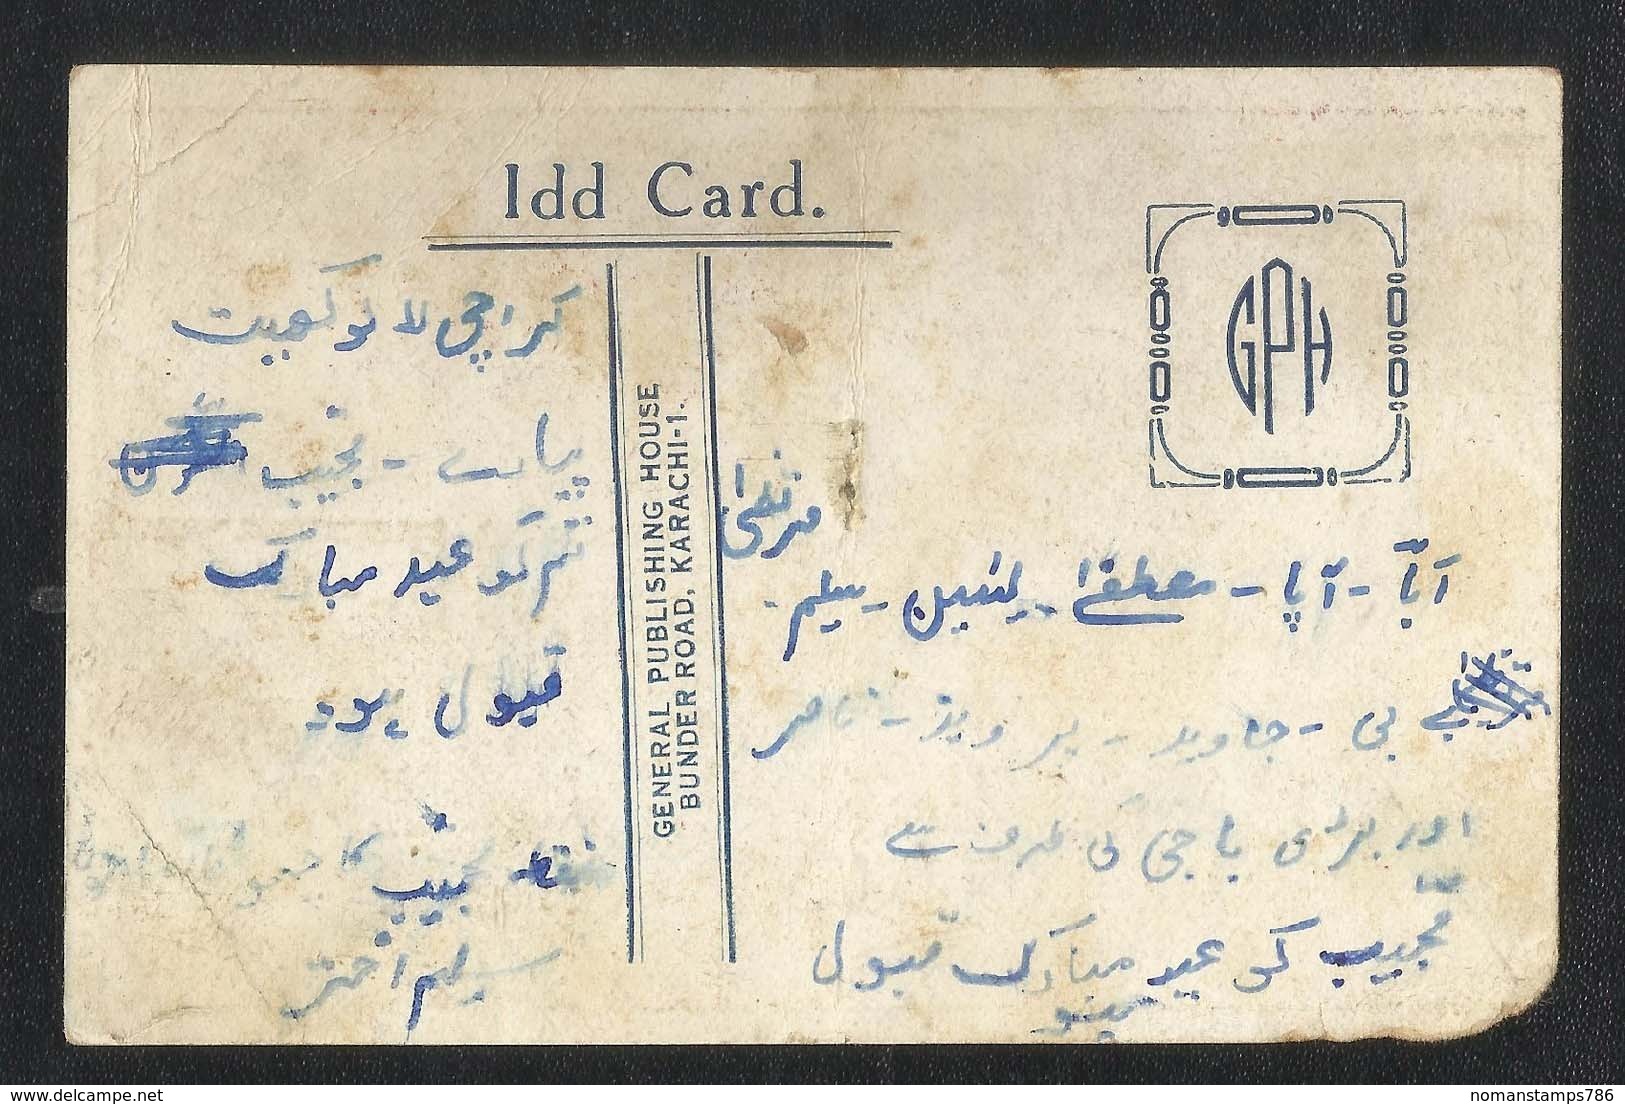 Idd Card.
GPH
GENERAL PUBLISHING HOUSE
BUNDER ROAD, KARACHI-1.
کراچی لالو کھیت
پیارے - نجیب
تم کو عید مبارک
قبول ہو۔
نجیب
سلیم اختر
مرتضیٰ
ابّا - آپا - مصطفےٰ - یٰسین - سلیم -
بی - جاوید - پرویز - ناصر
اور بڑی باجی کی طرف سے
نجیب کو عید مبارک قبول
delcampe.net
nomanstamps786